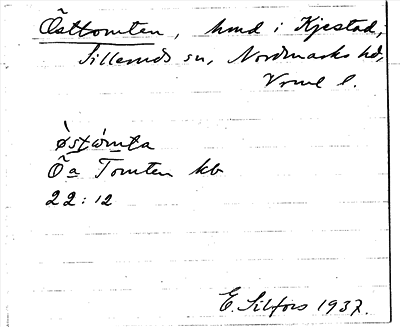 Östtomten, hmd i Kjestad,
Silleruds sn, Nordmarks hd,
Vrml l.
östòmta
Öa Tomten kb
22:12
E. Silfors 1937.